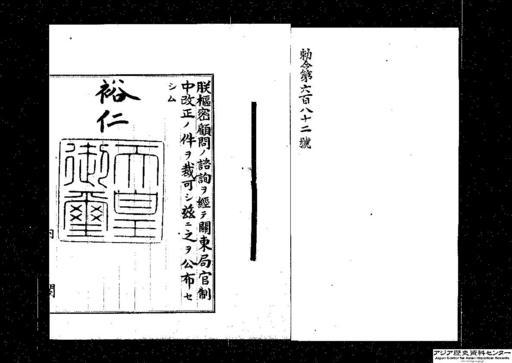 勅令第六百八十二號
朕樞密顧問ノ諮詢ヲ經テ關東局官制
中改正ノ件ヲ裁可シ茲ニ之ヲ公布セ
シム
裕仁
天皇
御璽
内
閣
アジア歴史資料センター
Japan Center for Asian Historical Records